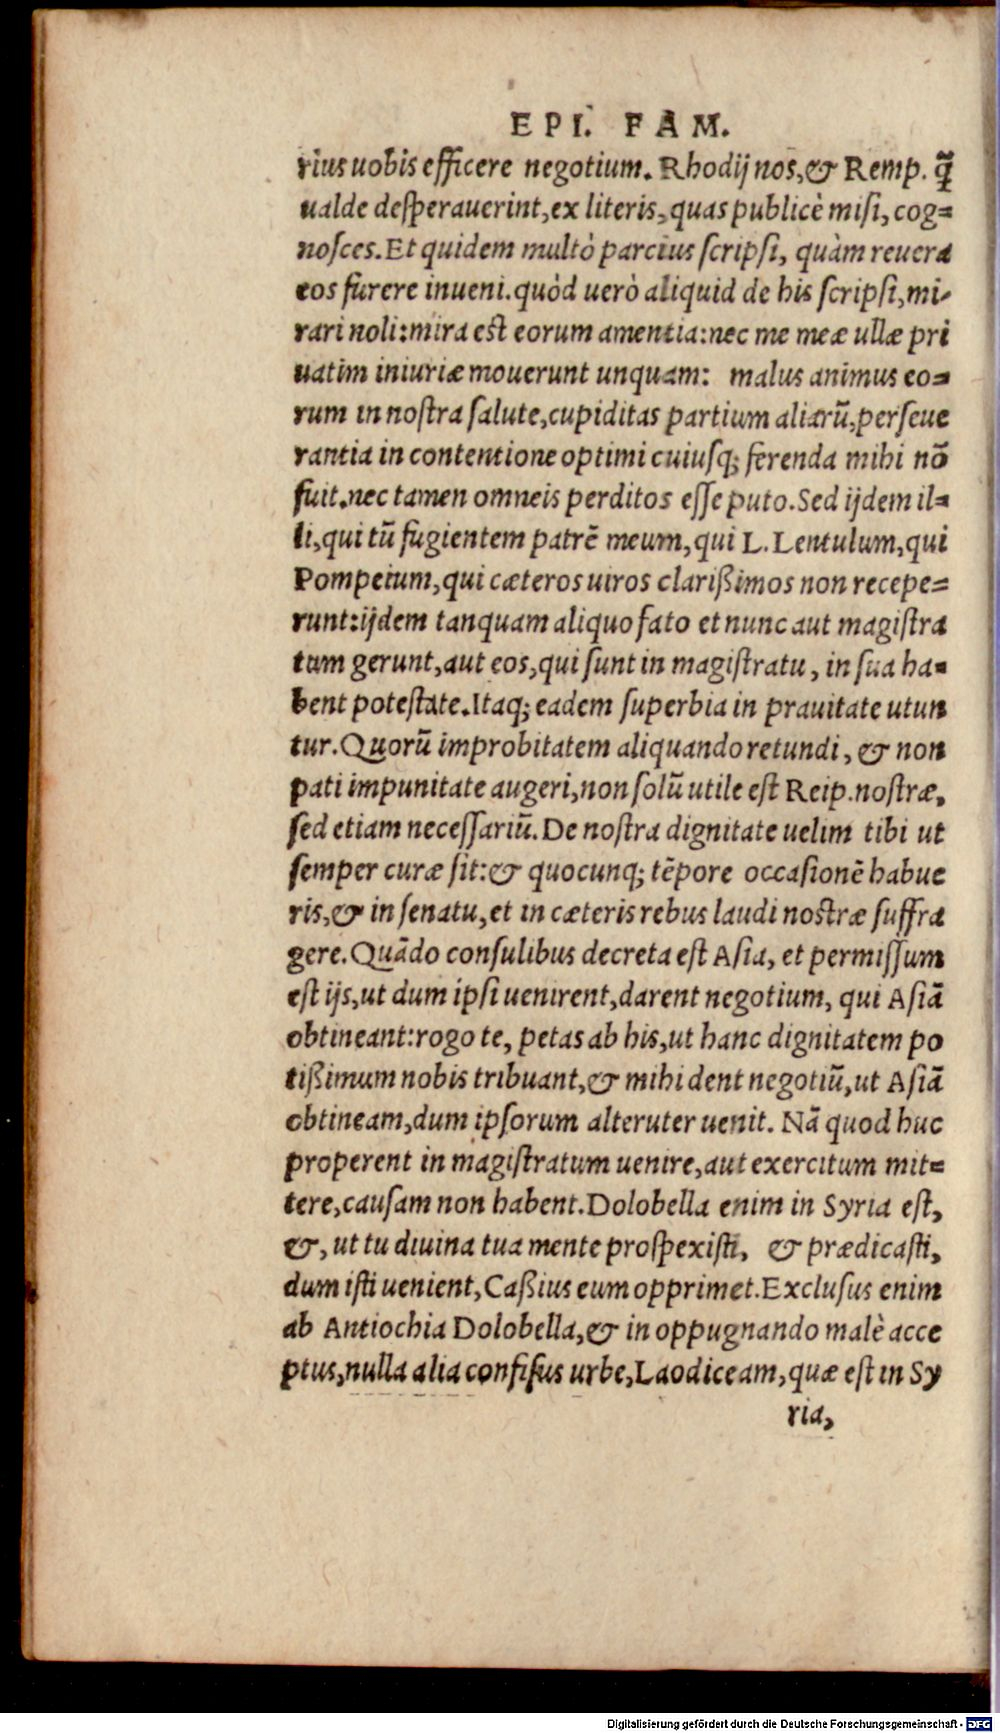 EPI. FAM.
rius uobis efficere negotium. Rhodij nos, & Remp. q̃
ualde desperauerint, ex literis, quas publicè misi, cog=
nosces. Et quidem multò parcius scripsi, quàm reuera
eos furere inueni. quòd uerò aliquid de his scripsi, mi-
rari noli: mira est eorum amentia: nec me meæ ullæ pri
uatim iniuriæ mouerunt unquam: malus animus eo=
rum in nostra salute, cupiditas partium aliarũ, perseue
rantia in contentione optimi cuiusq; ferenda mihi nõ
fuit. nec tamen omneis perditos esse puto. Sed ijdem il=
li, qui tũ fugientem patrẽ meum, qui L. Lentulum, qui
Pompeium, qui cæteros uiros clarißimos non recepe=
runt: ijdem tanquam aliquo fato et nunc aut magistra
tum gerunt, aut eos, qui sunt in magistratu, in sua ha=
bent potestate. Itaq; eadem superbia in prauitate utun
tur. Quorũ improbitatem aliquando retundi, & non
pati impunitate augeri, non solũ utile est Reip. nostræ,
sed etiam necessariũ. De nostra dignitate uelim tibi ut
semper curæ sit: & quocunq; tẽpore occasionẽ habue
ris, & in senatu, et in cæteris rebus laudi nostræ suffra
gere. Quãdo consulibus decreta est Asia, et permissum
est ijs, ut dum ipsi uenirent, darent negotium, qui Asiã
obtineant: rogo te, petas ab his, ut hanc dignitatem po
tißimum nobis tribuant, & mihi dent negotiũ, ut Asiã
obtineam, dum ipsorum alteruter uenit. Nã quod huc
properent in magistratum uenire, aut exercitum mit=
tere, causam non habent. Dolobella enim in Syria est,
&, ut tu diuina tua mente prospexisti, & prædicasti,
dum isti uenient, Caßius eum opprimet. Exclusus enim
ab Antiochia Dolobella, & in oppugnando malè acce
ptus, nulla alia confisus urbe, Laodiceam, quæ est in Sy
ria,
Digitalisierung gefördert durch die Deutsche Forschungsgemeinschaft - DFG